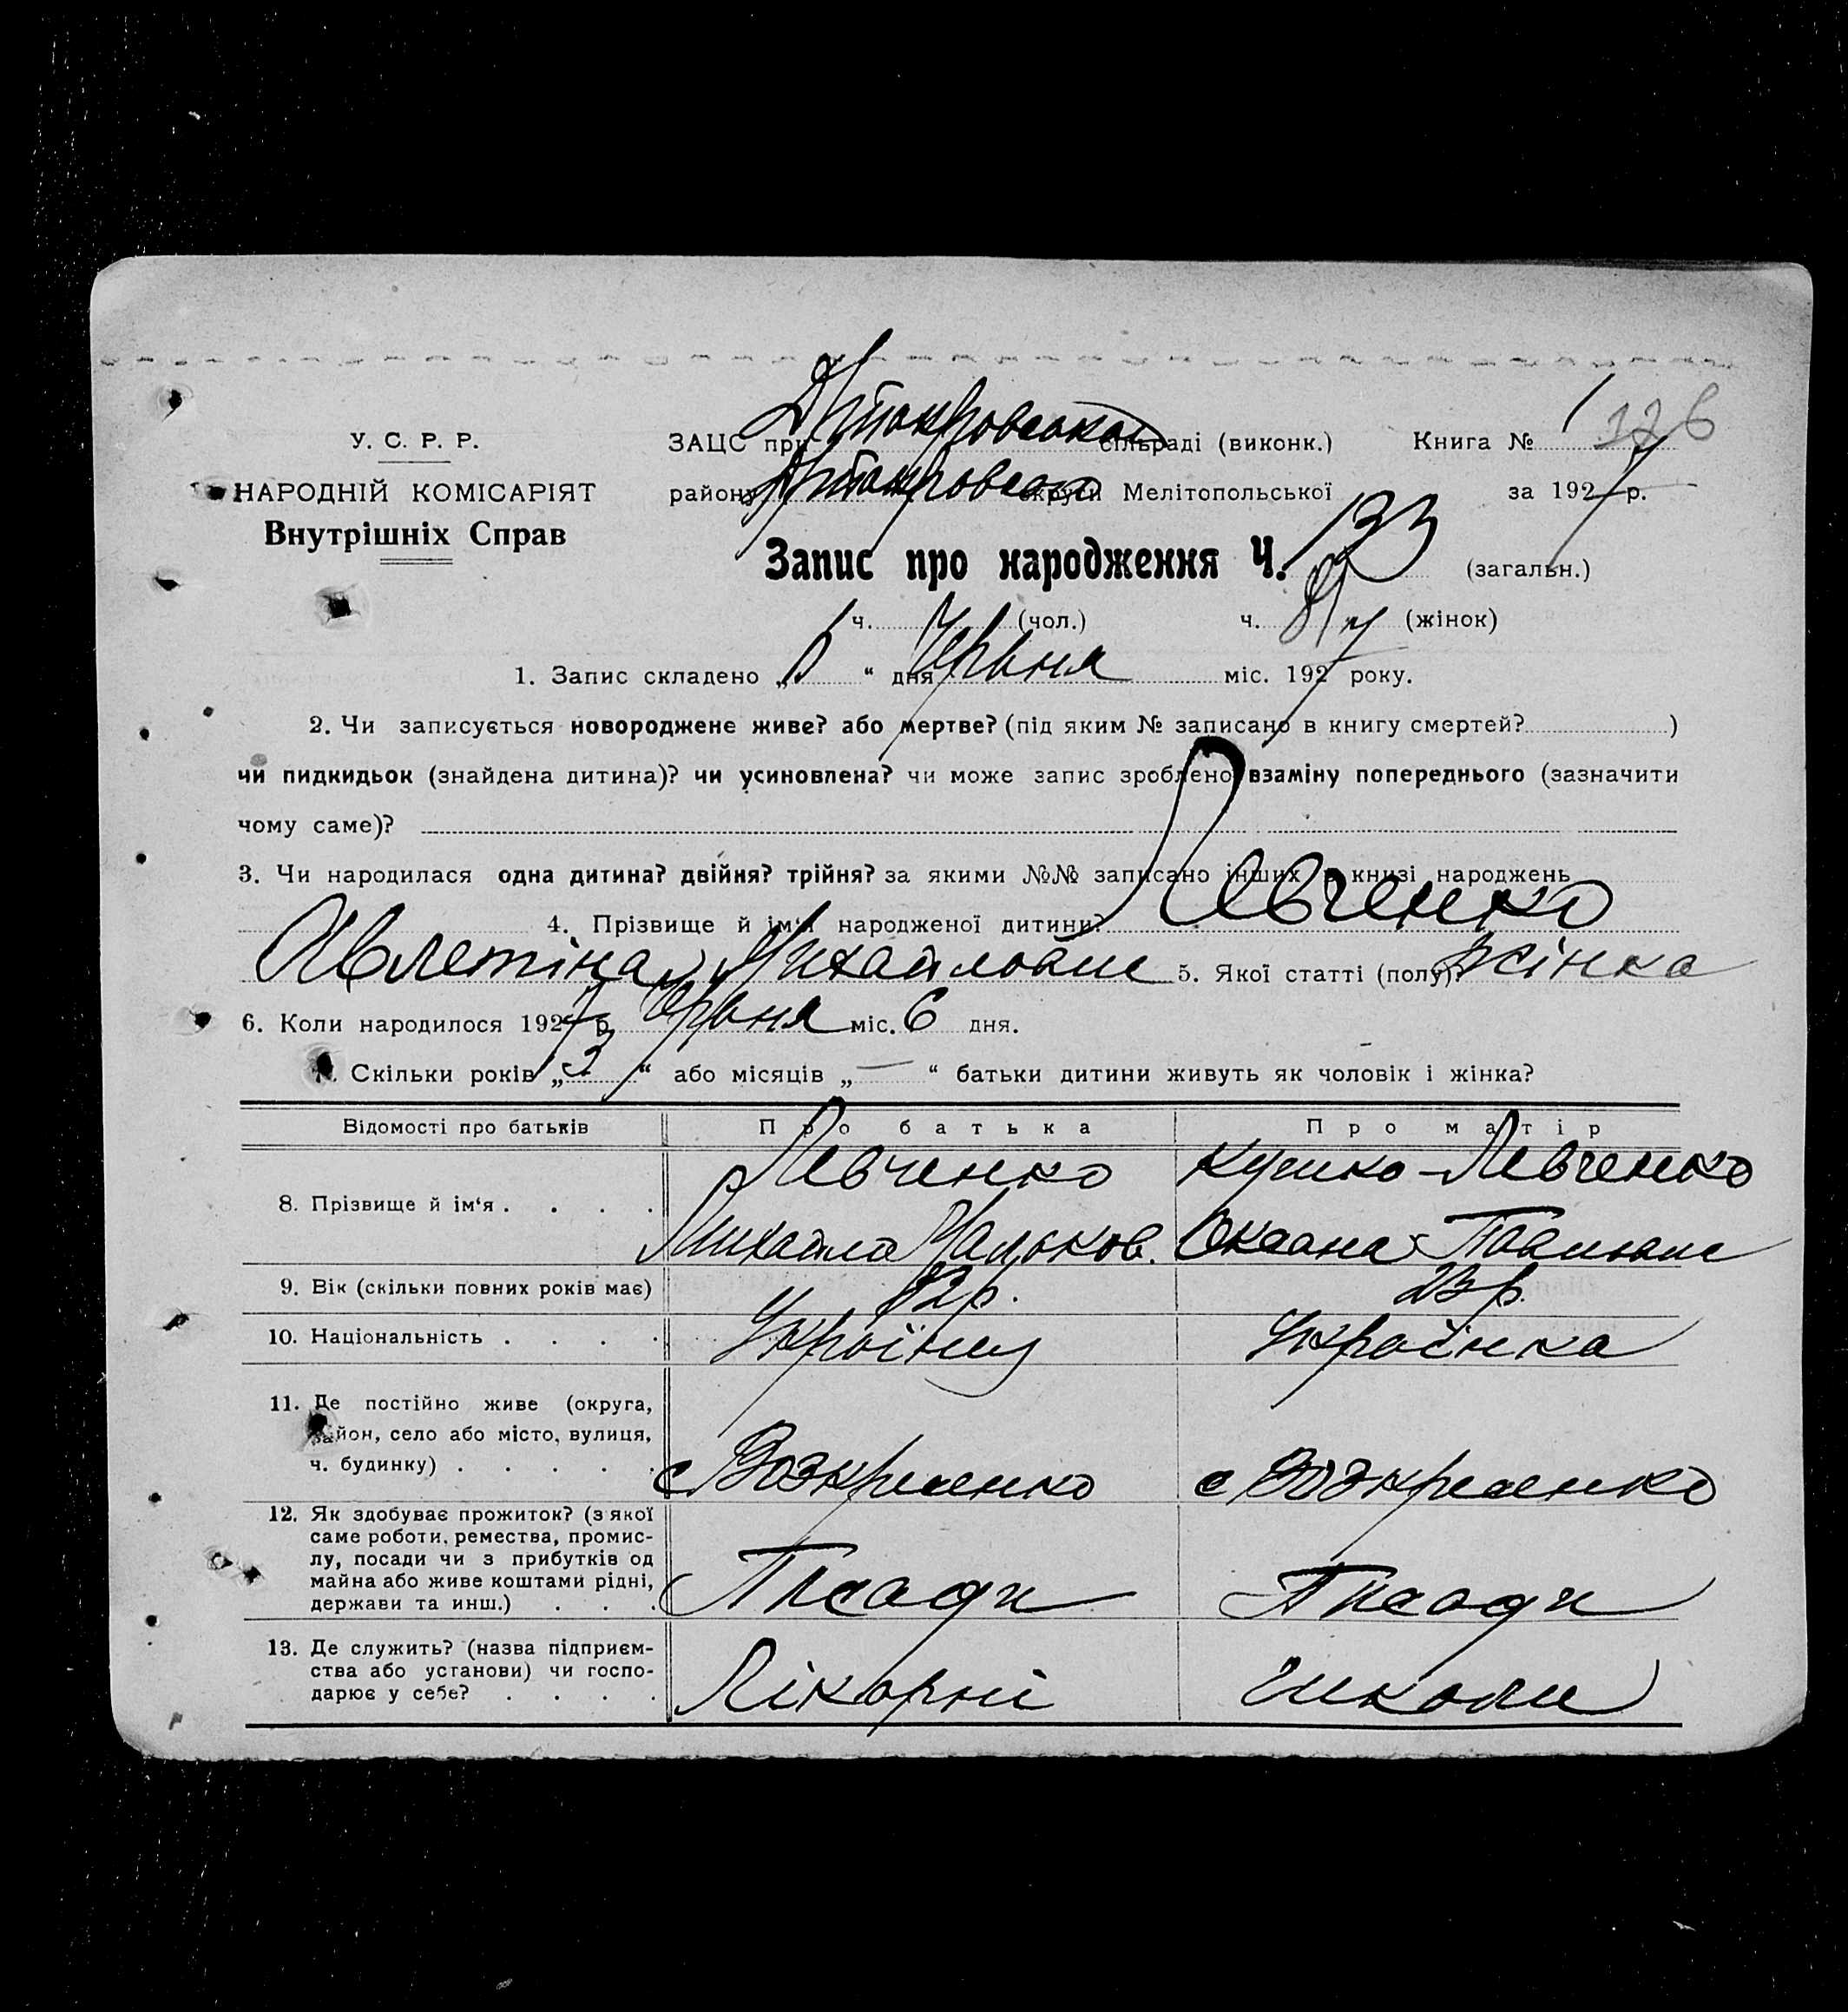 У. С. Р. Р.
НАРОДНІЙ КОМІСАРІЯТ
Внутрішніх Справ
ЗАЦС при сільраді (виконк.) Книга № 1 176
району округи Мелітопольської за 1927 р.
Запис про народження Ч. 133 (загальн.)
ч. (чол.) ч. (жінок)
1. Запис складено „ “ дня Червня міс. 1927 року.
2. Чи записується новороджене живе? або мертве? (під яким № записано в книгу смертей? )
чи пидкидьок (знайдена дитина)? чи усиновлена? чи може запис зроблено взаміну попереднього (зазначити
чому саме)?
3. Чи народилася одна дитина? двійня? трійня? за якими №№ записано інших в книзі народжень
4. Прізвище й ім‘я народженої дитини? Левченко
Михайловна 5. Якої статті (полу)? жінка
6. Коли народилося 1927 р. Червня міс. 6 дня.
7. Скільки років „3“ або місяців „—“ батьки дитини живуть як чоловік і жінка?
Відомості про батьків Про батька Про матір
8. Прізвище й ім‘я . . . . Левченко -Левченко
Михайло Оксана
9. Вік (скільки повних років має) 32р. 23р.
10. Національність . . . . Українец Українка
11. Де постійно живе (округа,
район, село або місто, вулиця,
ч. будинку) . . . . . с Возкресенко с Возкресенко
12. Як здобуває прожиток? (з якої
саме роботи, ремества, промис-
лу, посади чи з прибутків од
майна або живе коштами рідні,
держави та инш.) . . . Посади Посади
13. Де служить? (назва підприєм-
ства або установи) чи госпо-
дарює у себе? . . . . Лікарні Школи